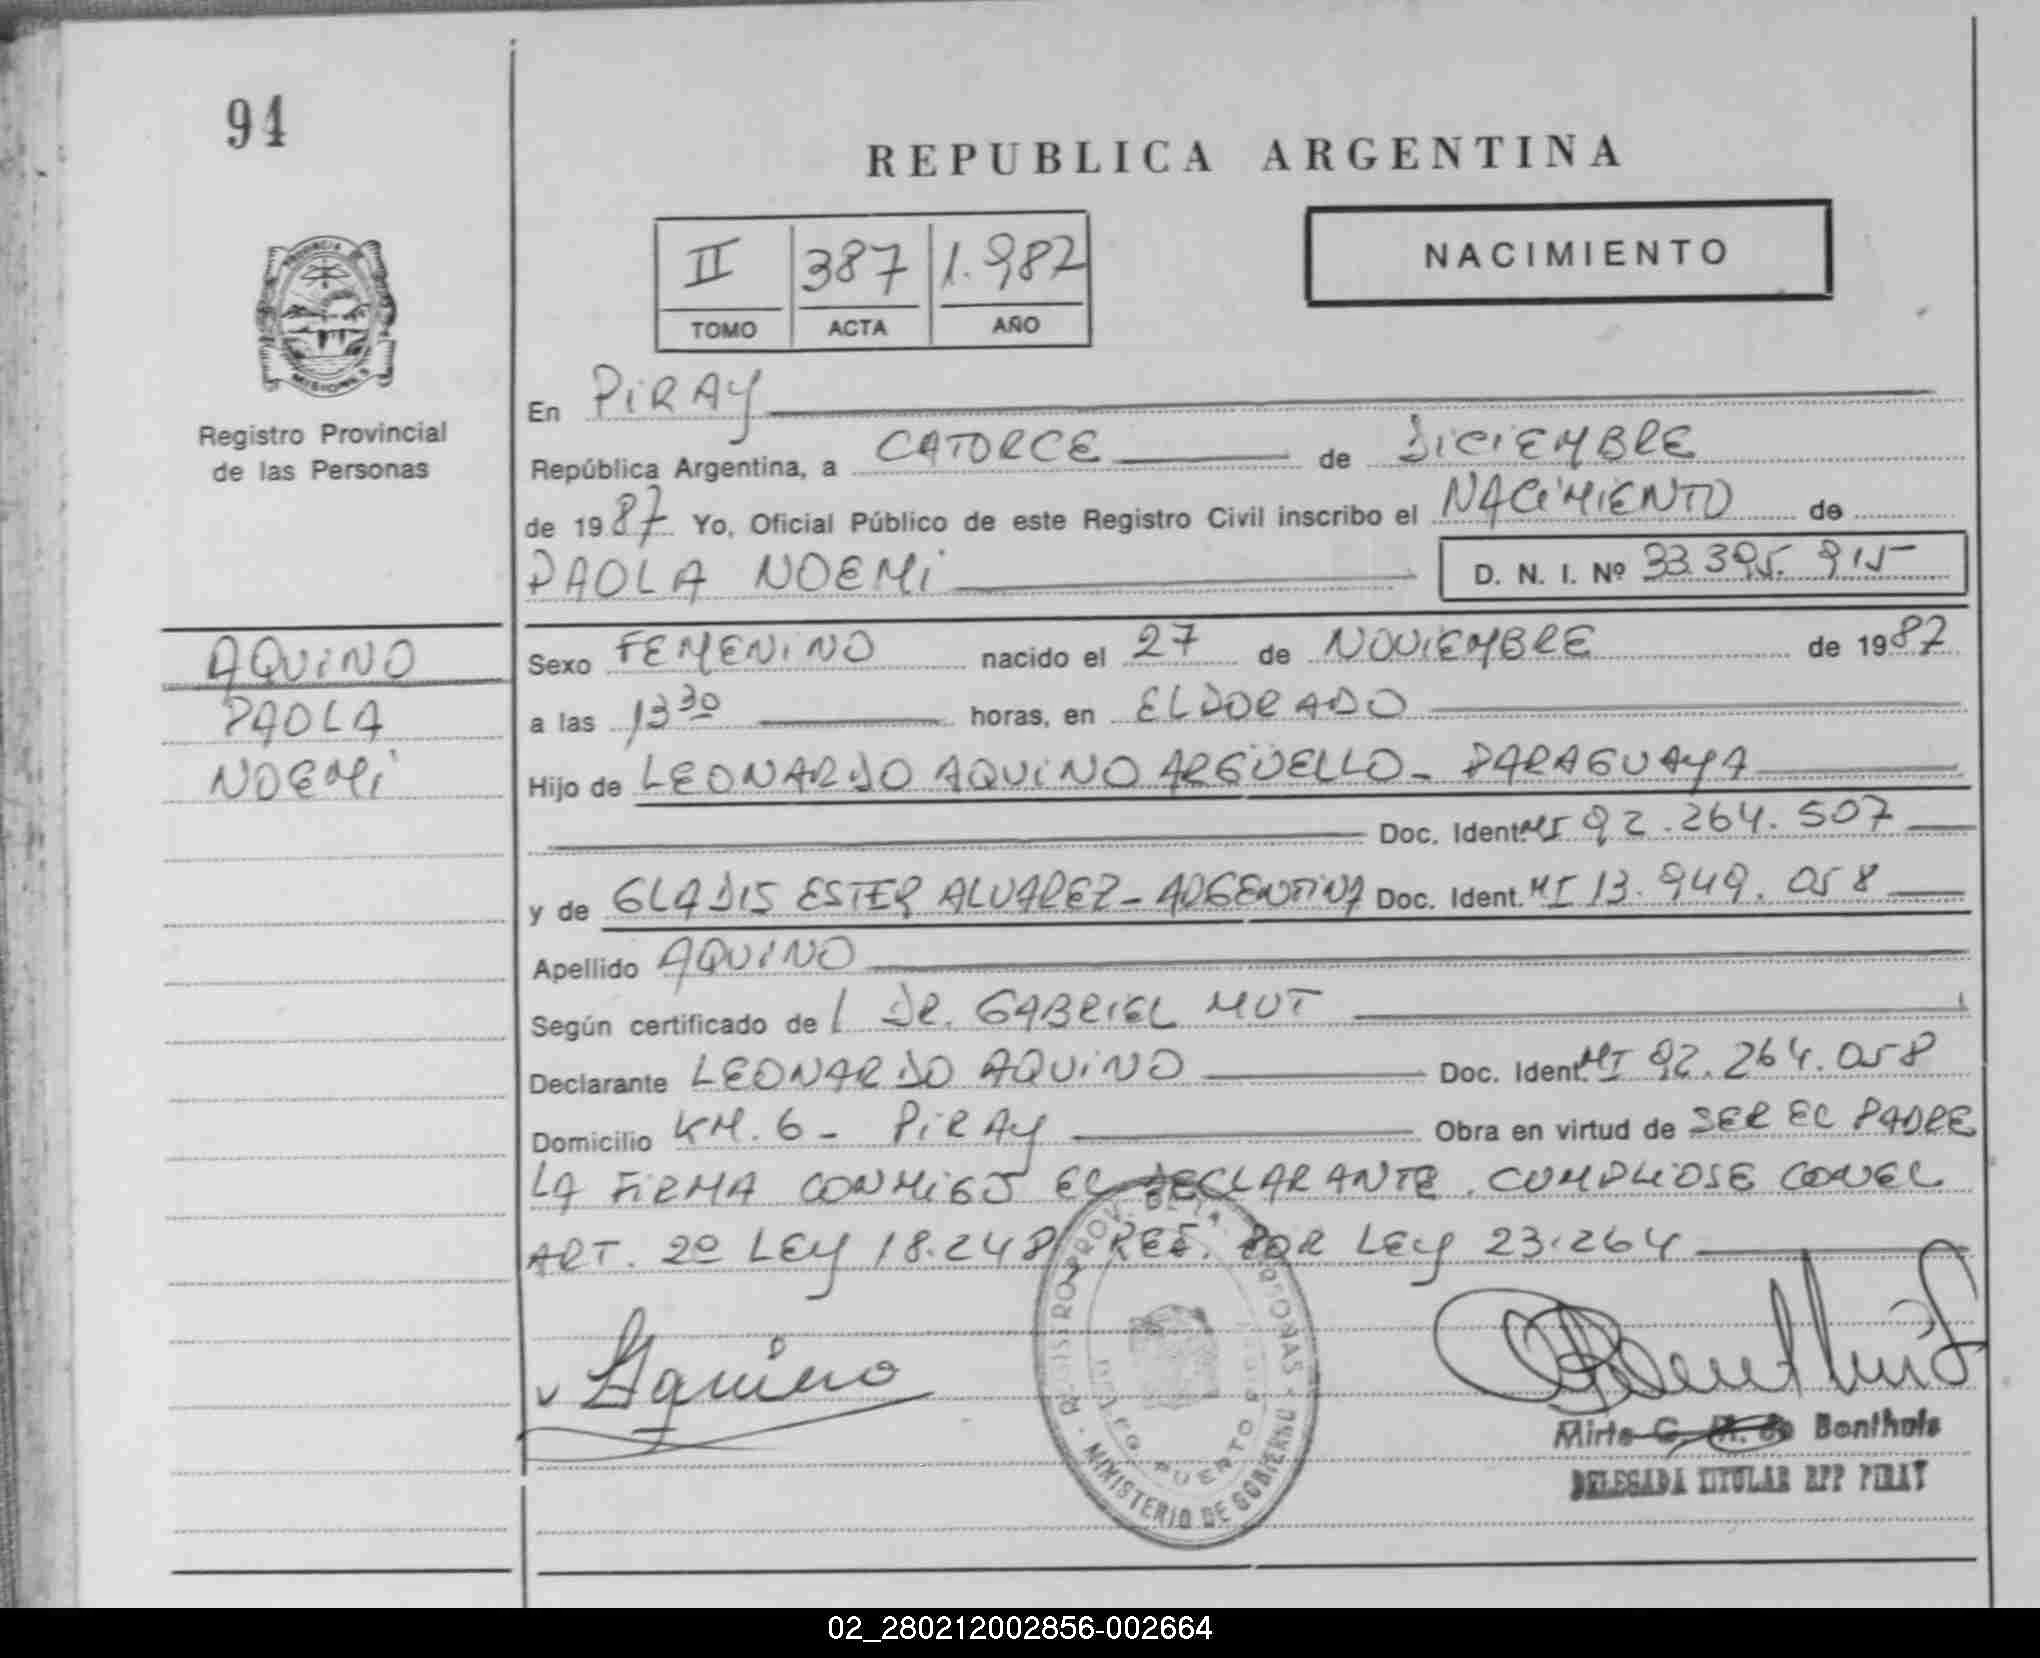 94
REPUBLICA ARGENTINA
II 387 1.987
TOMO ACTA AÑO
NACIMIENTO
PROVINCIA DE
MISIONES
Registro Provincial
de las Personas
En PIRAY
República Argentina, a CATORCE de DICIEMBRE
de 1987 Yo, Oficial Público de este Registro Civil inscribo el NACIMIENTO de
PAOLA NOEMI D. N. I. Nº 33.395.915
AQUINO
PAOLA
NOEMI
Sexo FEMENINO nacido el 27 de NOVIEMBRE de 1987
a las 13 30 horas, en ELDORADO
Hijo de LEONARDO AQUINO ARGÜELLO - PARAGUAYA
Doc. Ident. MI 92.264.507
y de GLADIS ESTER ALVAREZ - ARGENTINA Doc. Ident. MI 13.949.058
Apellido AQUINO
Según certificado de DR. GABRIEL MUT
Declarante LEONARDO AQUINO Doc. Ident. MI 92.264.058
Domicilio KM. 6 - PIRAY Obra en virtud de SER EL PADRE
LA FIRMA CONMIGO EL DECLARANTE. CUMPLIOSE CON EL
ART. 2º LEY 18.248 REF. POR LEY 23.264
LAquino
REGISTRO PROV. DE LAS PERSONAS
MINISTERIO DE GOBIERNO
PUERTO
Mirta G. M. de Bonthuis
DELEGADA TITULAR RPP PIRAY
02_280212002856-002664